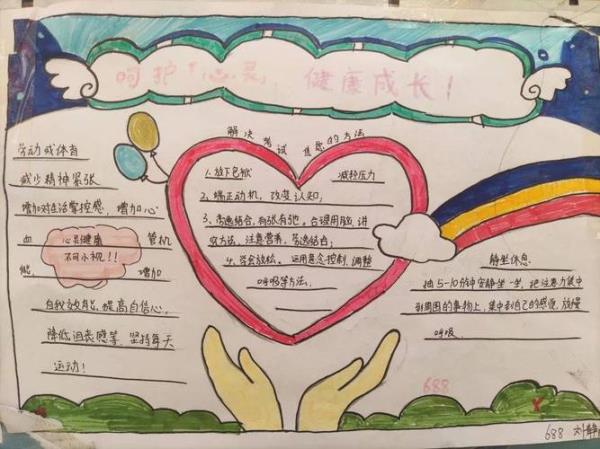 呵护「心灵，健康成长！
解决考试焦虑的方法
劳动或体育
减少精神紧张
增加对生活掌控感，增加心
血管机
能，增加
自我效能，提高自信心，
降低沮丧感等，坚持每天
运动！
心灵健康
不可小视！！
1、放下包袱 减轻压力
2、端正动机，改变认知；
3、劳逸结合，有张有弛。合理用脑，讲
究方法，注意营养，劳逸结合；
4、学会放松。运用意念控制，调整
呼吸等方法。
静坐休息
抽5-10分钟安静坐一坐，把注意力集中
到周围的事物上，集中到自己的感觉，放慢
呼吸。
688
688 刘静